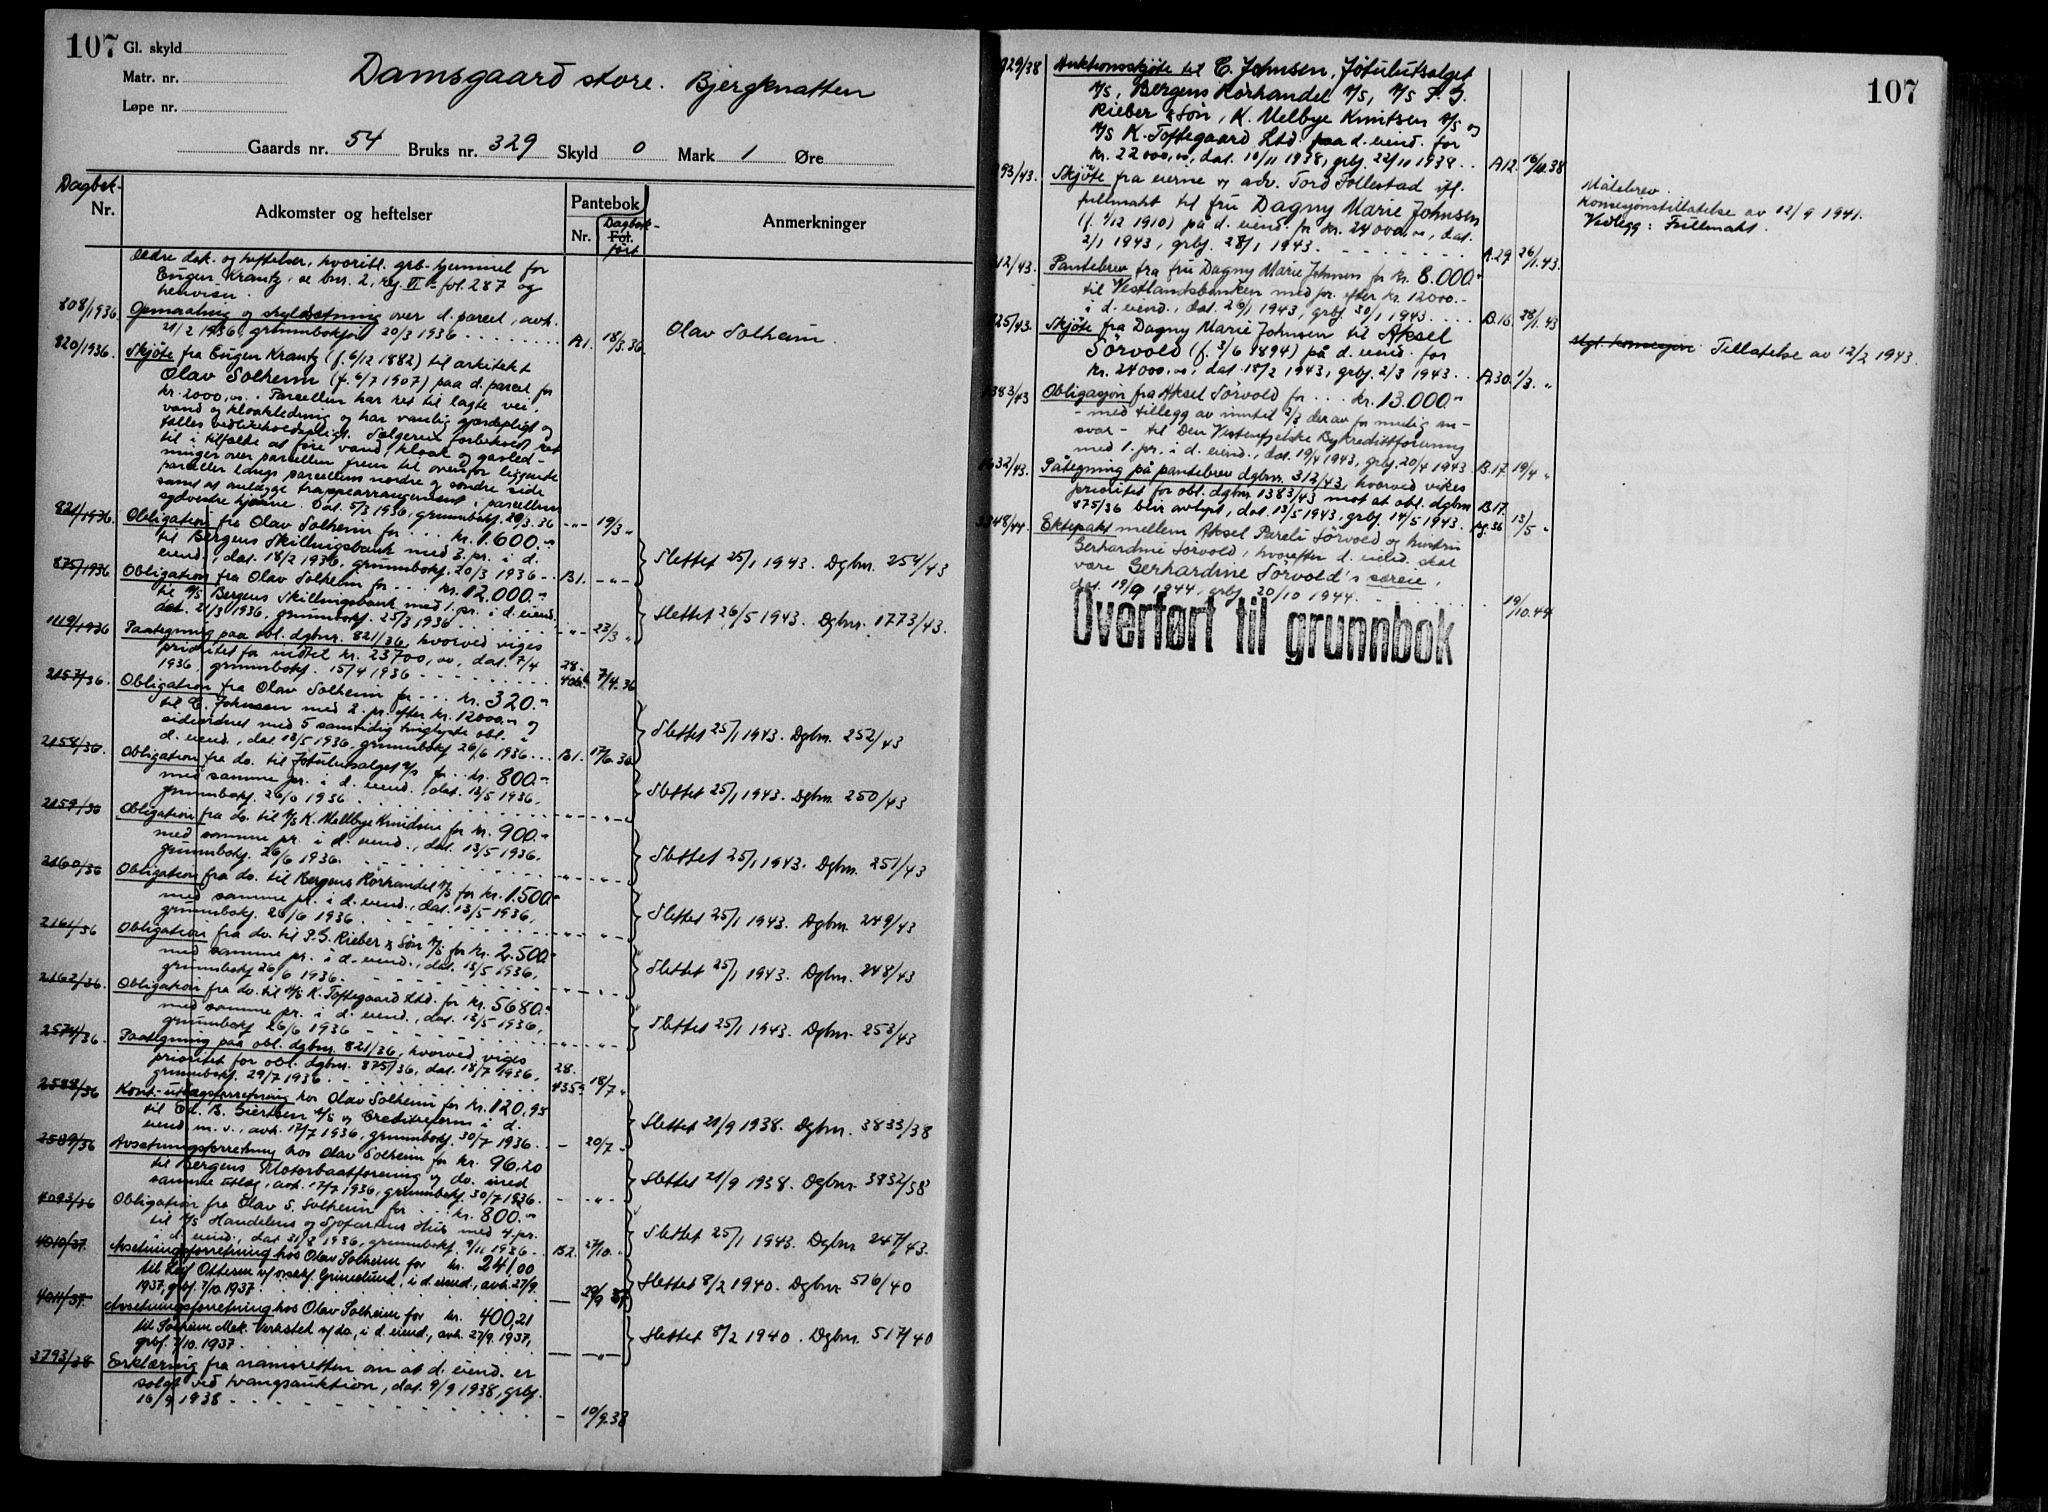 107 Gl. skyld
Matr. nr.
Løpe nr.
Damsgaard store. Bjergknatten
Gaards nr. 54 Bruks nr. 329 Skyld 0 Mark 1 Øre
Dagbok-
Nr.
Adkomster og heftelser
Pantebok
Nr.
Fol.
Dagbok-
ført
Anmerkninger
Ældre dok. og heftelser, hvoribl. grb. hjemmel for
Eugen Krantz, se bnr. 2, reg. VI - fol. 287 og
henvisn.
808/1936. Opmaaling og skyldsætning over d. parcel, avh.
21/2 1936, grunnbokf. 20/3 1936 A1. 18/3.36 Olav Solheim.
820/1936. Skjøte fra Eugen Krantz (f. 6/12 1882) til arkitekt
Olav Solheim (f. 6/7 1907) paa d. parcel for
kr. 2000,00. Parcellen har ret til lagte vei,
vand og kloakledning og har vanlig gjærdepligt og
fælles vedlikeholdspligt. Sælgeren forbeholdt ret
til i tilfælde at føre vand, kloak og gasled-
ninger over parcellen frem til ovenfor liggende
parceller langs parcellens nordre og søndre side
samt at anlægge trappearrangement i parcellens
sydvestre hjørne. Dat. 5/3 1936, grunnbokf. 20/3.36 -"- 19/3 "
821/1936. Obligation fra Olav Solheim for . . . kr. 1600.-
til Bergens Skillingsbank med 3. pr. i d.
eiend., dat. 18/2 1936, grunnbokf. 20/3 1936 B1. -"- Slettet 25/1 1943. Dgbnr. 254/43
875/1936 Obligation fra Olav Solheim for . . . kr. 12,000.-
til A/S Bergens Skillingsbank med 1. pr. i d. eiend.
dat. 21/3 1936, grunnbokf. 25/3 1936 -"- 23/3 " Slettet 26/5 1943. Dgbnr. 1773/43.
1119/1936 Paategning paa obl. dgbnr. 821/36, hvorved viges
prioritet for indtil kr. 23700,00, dat. 7/4
1936, grunnbokf. 15/4 1936 28. 7/4.36
2157/36. Obligation fra Olav Solheim for . . . kr. 320.-
til C. Johnsen med 2. pr. efter kr. 12000.- og
sideordnet med 5 samtidig tinglyste obl. i
d. eiend., dat. 13/5 1936, grunnbokf. 26/6 1936 B1. 17/6.36 Slettet 25/1 1943. Dgbnr. 252/43
2158/36. Obligation fra do. til Jøtulutsalget A/S for kr. 800.-
med samme pr. i d. eiend., dat. 13/5 1936,
grunnbokf. 26/6 1936 Slettet 25/1 1943. Dgbnr. 250/43
2159/36 Obligation fra do. til A/S K. Mellbye Knudsen for kr. 900.-
med samme pr. i d. eiend., dat. 13/5 1936,
grunnbokf. 26/6 1936. Slettet 25/1 1943. Dgbnr. 251/43
2160/36 Obligation fra do. til Bergens Rørhandel A/S for kr. 1500.-
med samme pr. i d. eiend., dat. 13/5 1936,
grunnbokf. 26/6 1936 Slettet 25/1 1943. Dgbnr. 249/43
2161/36 Obligation fra do. til P.G. Rieber & Søn A/S for kr. 2.500.-
med samme pr. i d. eiend., dat. 13/5 1936,
grunnbokf. 26/6 1936. Slettet 25/1 1943. Dgbnr. 248/43
2162/36. Obligation fra do. til A/S K. Toftegaard Ltd. for kr. 5680.-
med samme pr. i d. eiend., dat. 13/5 1936,
grunnbokf. 26/6 1936 Slettet 25/1 1943. Dgbnr. 253/43
2574/36. Paategning paa obl. dgbnr. 821/36, hvorved viges
prioritet for obl. dgbnr. 875/36, dat. 18/7 1936,
grunnbokf. 29/7 1936. 28. 18/7 "
2588/36 Kont.-utlægsforretning hos Olav Solheim for kr. 120,95
til Ed. B. Giertsen A/S v/ Creditreform i d.
eiend. m. v., avh. 17/7 1936, grunnbokf. 30/7 1936 - 20/7 " Slettet 21/9 1938. Dgbnr. 3833/38
2589/36 Avsetningsforretning hos Olav Solheim for kr. 96,20
til Bergens Motorbaatforening v/ do. med
samme utlæg, avh. 17/7 1936, grunnbokf. 30/7 1936 - " Slettet 21/9 1938. Dgbnr. 3832/38
4093/36 Obligation fra Olav S. Solheim for . . . kr. 800.-
til A/S Handelens og Sjøfartens Hus med 4. pr.
i d. eiend., dat. 31/8 1936, grunnbokf. 9/11 1936 B2. 27/10. " Slettet 25/1 1943. Dgbnr. 247/43.
4010/37. Avsetningsforretning hos Olav Solheim for kr. 241,00
til Leif Ottesen v/ orsakf. Grimelund, i d. eiend., avh. 27/9.
1937, grbf. 7/10. 1937 29/9 37 Slettet 8/2 1940. Dgbnr. 516/40
4011/37. Avsetningsforretning hos Olav Solheim for kr. 400,21
til Solheim Mek. Verksted v/ do., i d. eiend., avh. 27/9. 1937,
grbf. 7/10. 1937 - " Slettet 8/2 1940. Dgbnr. 517/40
3793/38 Erklæring fra namsretten om at d. eiend. er
solgt ved tvangsauktion, dat. 9/9 1938, grbf.
16/9 1938 - 10/9.38
107
929/38 Auktionsskjøte til C. Johnsen, Jøtulutsalget
A/S, Bergens Rørhandel A/S, A/S P. G.
Rieber & Søn, K. Melbye Knutsen A/S og
A/S K. Toftegaard Ltd. paa d. eiend. for
kr. 22000,00, dat. 10/11 1938, grbf. 22/10 1938. A12. 38
93/43. Skjøte fra eierne v/ adv. Tord Follestad ifl.
fullmakt til fru Dagny Marie Johnsen
(f. 4/12 1910) på d. eiend. for kr. 24000,00, dat.
2/1 1943, grbf. 28/1 1943. A.29 26/1.43.
Målebrev.
Konsesjonstillatelse av 12/9 1941.
Vedlegg: Fullmakt.
12/43. Pantebrev fra fru Dagny Marie Johnsen for kr. 8.000.-
til Vestlandsbanken med pr. efter kr. 12000.-
i d. eiend., dat. 26/1 1943, grbf. 30/1 1943. B.16 28/1.43
25/43. Skjøte fra Dagny Marie Johnsen til Aksel
Sörvold (f. 3/6 1894) på d. eiend. for
kr. 24000,00, dat. 18/2 1943, grbf. 2/3 1943. A.30. 1/3. " Tillatelse av 12/2 1943.
383/43 Obligasjon fra Aksel Sörvold for . . . kr. 13.000.-
- med tillegg av inntil 2/3 derav for mulig an-
svar - til Den Vestenfjelske Bykredittforening
med 1. pr. i d. eiend., dat. 19/4 1943, grbf. 20/4 1943 B.17. 19/4 "
632/43. Påtegning på pantebrev dgbnr. 312/43, hvorved vikes
prioritet for obl. dgbnr. 1383/43 mot at obl. dgbnr.
875/36 blir avlyst, dat. 13/5 1943, grbf. 14/5 1943. B.17. 13/5 "
3348/44. Ektepakt mellem Aksel Pareli Sörvold og hustru
Gerhardine Sörvold, hvorefter d. eiend. skal
være Gerhardine Sörvold's særeie,
dat. 19/9 1944, grbf. 20/10 1944. 19/10.44
Overført til grunnbok